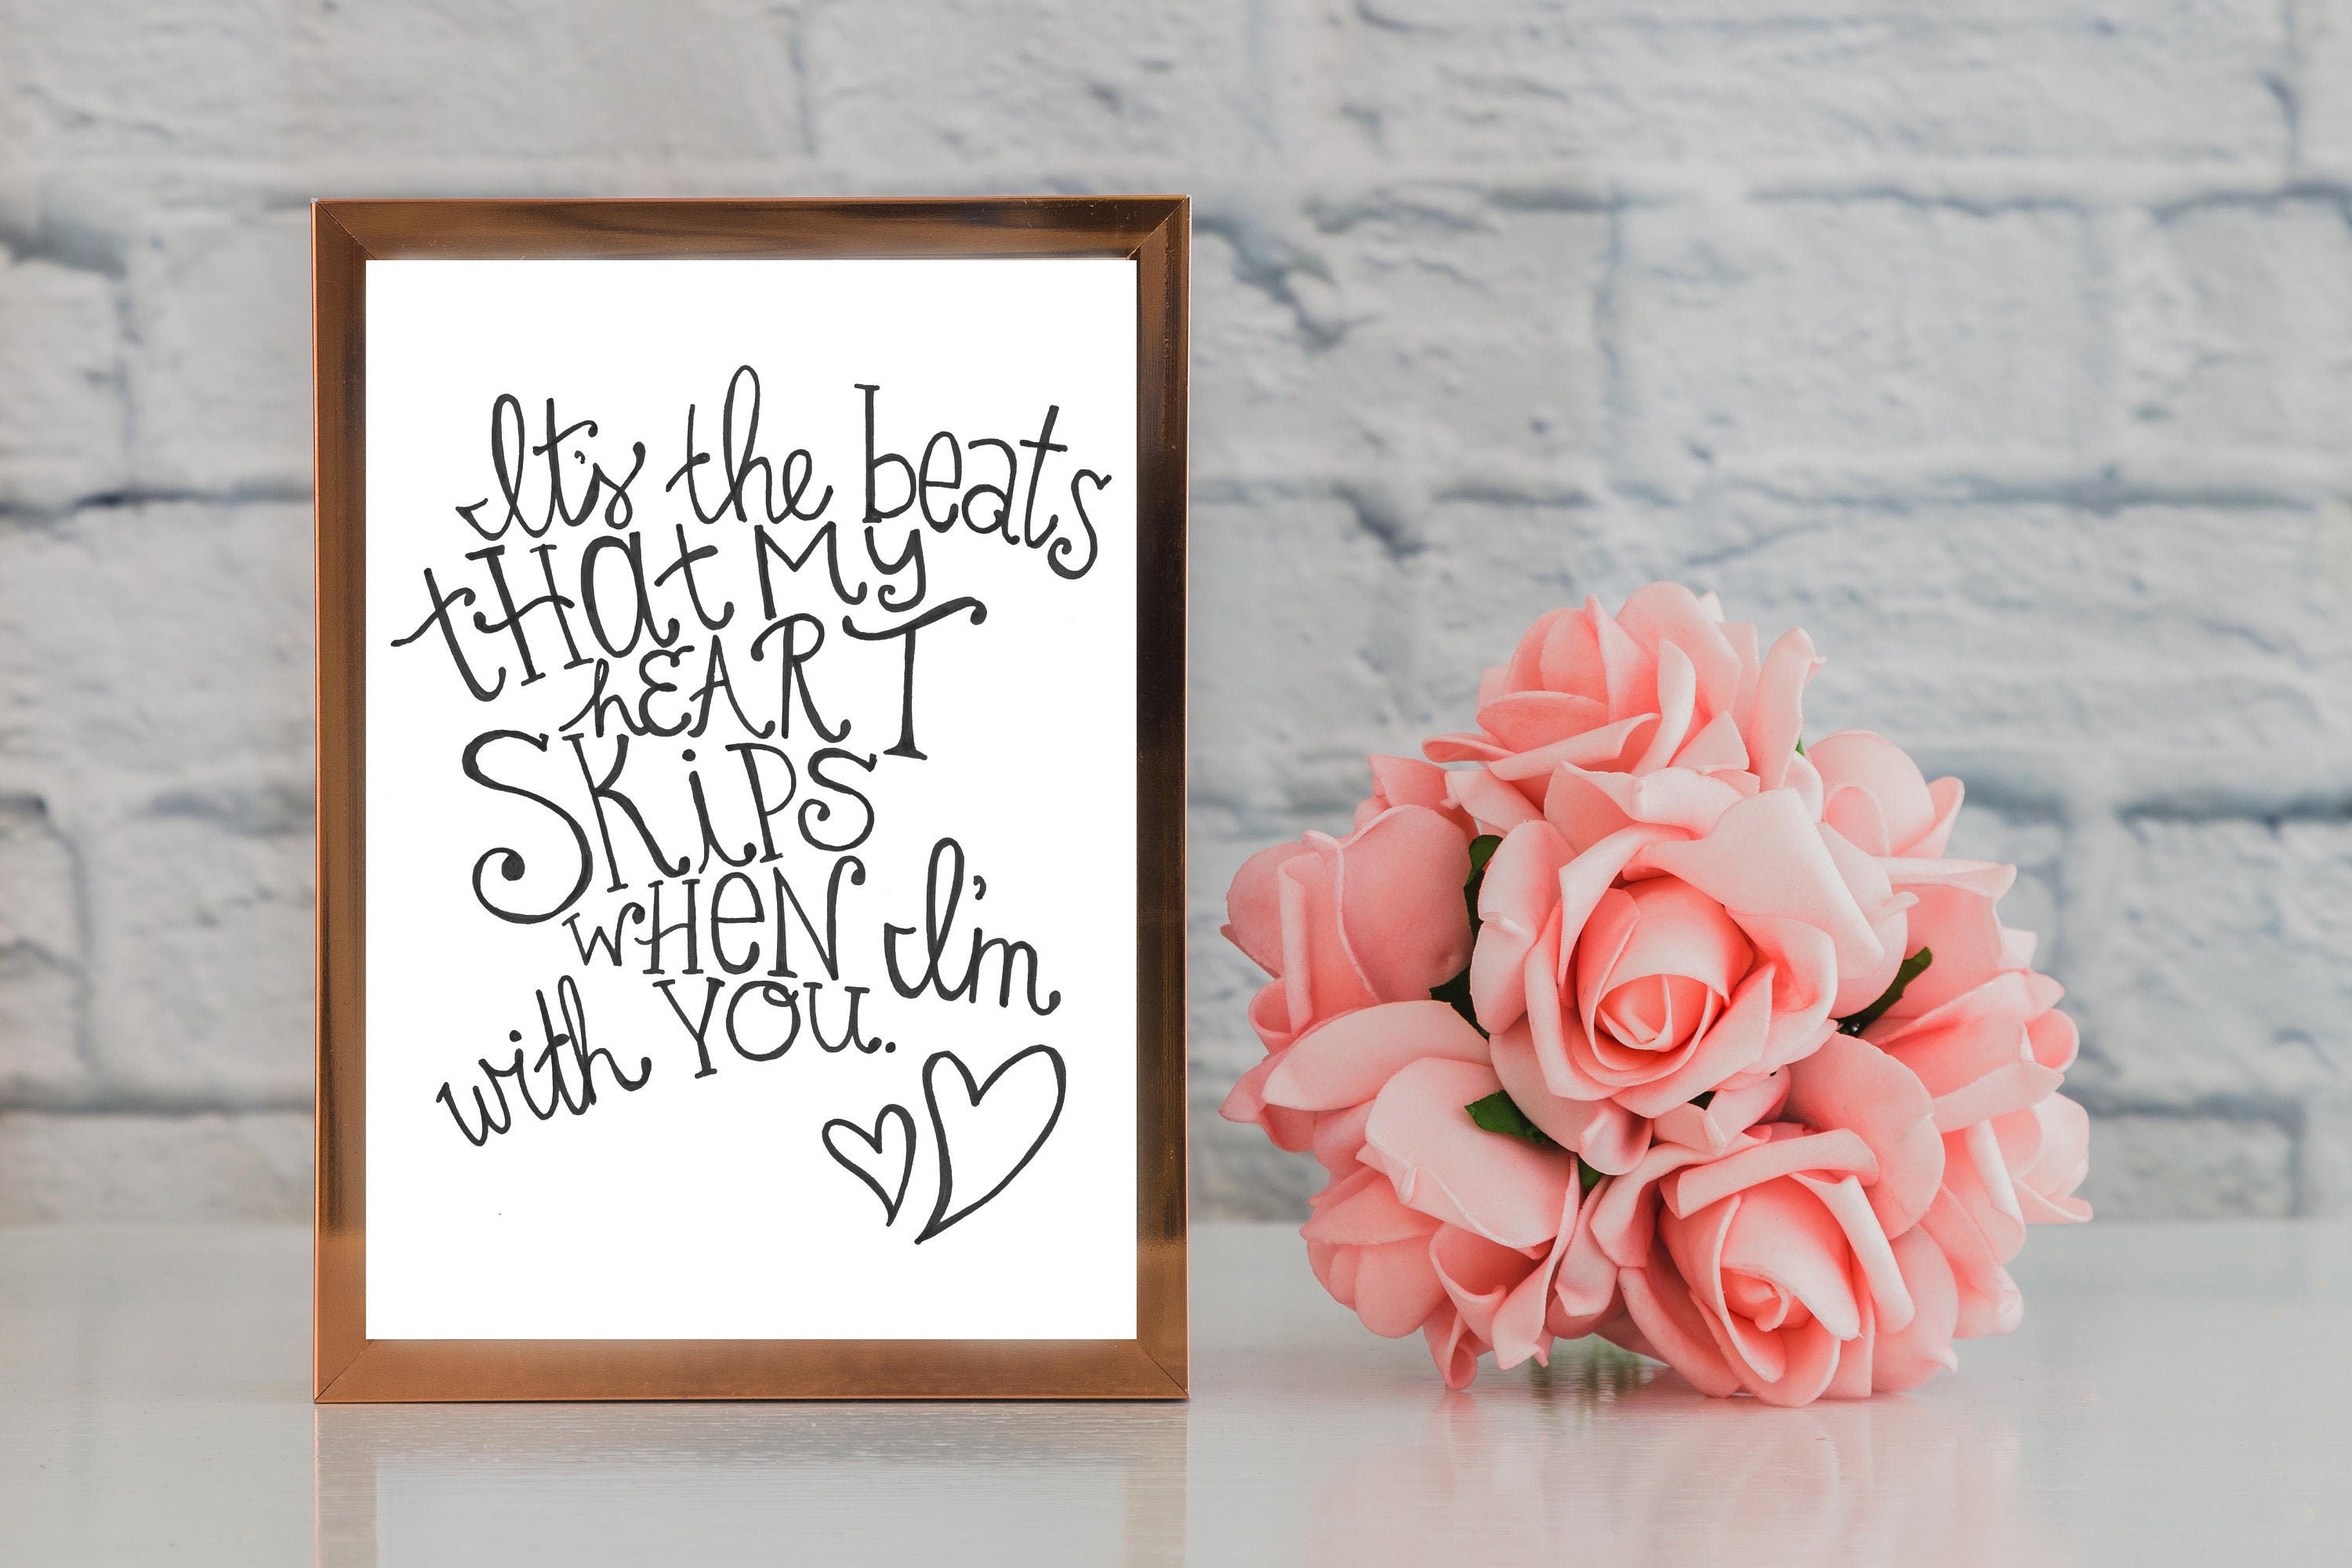 It's the beats
tHat My
hEART
SKiPS
wHeN I'm
with YOU.